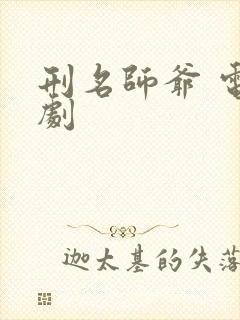 刑名師爺 電
劇
迦太基的失落